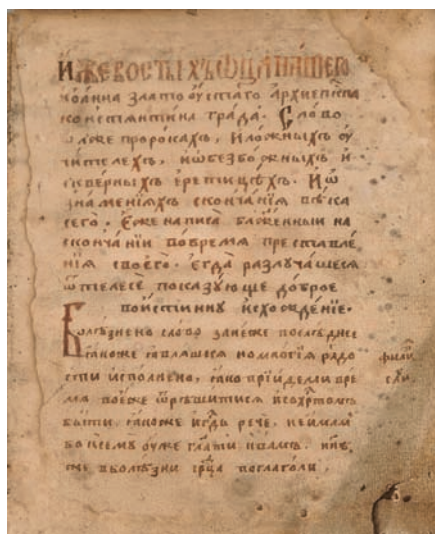 Иже во ст҃ы́хъ ѿца на́шего
Иѡа́нна златоꙋ́стаго архиепⷭ҇кпа
константи́на гра́да. Сло́во
ѡ лже проро́кахъ, и ло́жныхъ ᲂу
чи́телехъ, и ѡ безбо́жныхъ и
скве́рныхъ ерети́цѣхъ. И ѡ
зна́менїихъ сконча́нїѧ вѣ́ка
сего̀. Е́же написа̀ блаже́нныи на
сконча́нїи во вре́мѧ преставле́
нїѧ своего̀. Егда̀ разлꙋча́шесѧ
ѿ телесѐ показꙋ́юще до́брое
вои́стиннꙋ исхожде́нїе.
Болѣ́знено сло́во зане́же послѣ́днее
ꙗ́коже ꙗвлѧ́шесѧ но мно́гїѧ ра́до
сти испо́лнено, ꙗ́ко прїи́де ми вре́
мѧ во е́же ѿрѣши́тисѧ и со хрⷭ҇то́мъ
бы́ти. ꙗ́коже гдⷭ҇ь речѐ, не и́мамъ
во всемъ ᲂужѐ гл҃ати к ва́мъ. нн҃ѣ
же в болѣ́зни срⷣца поглаго́лю,